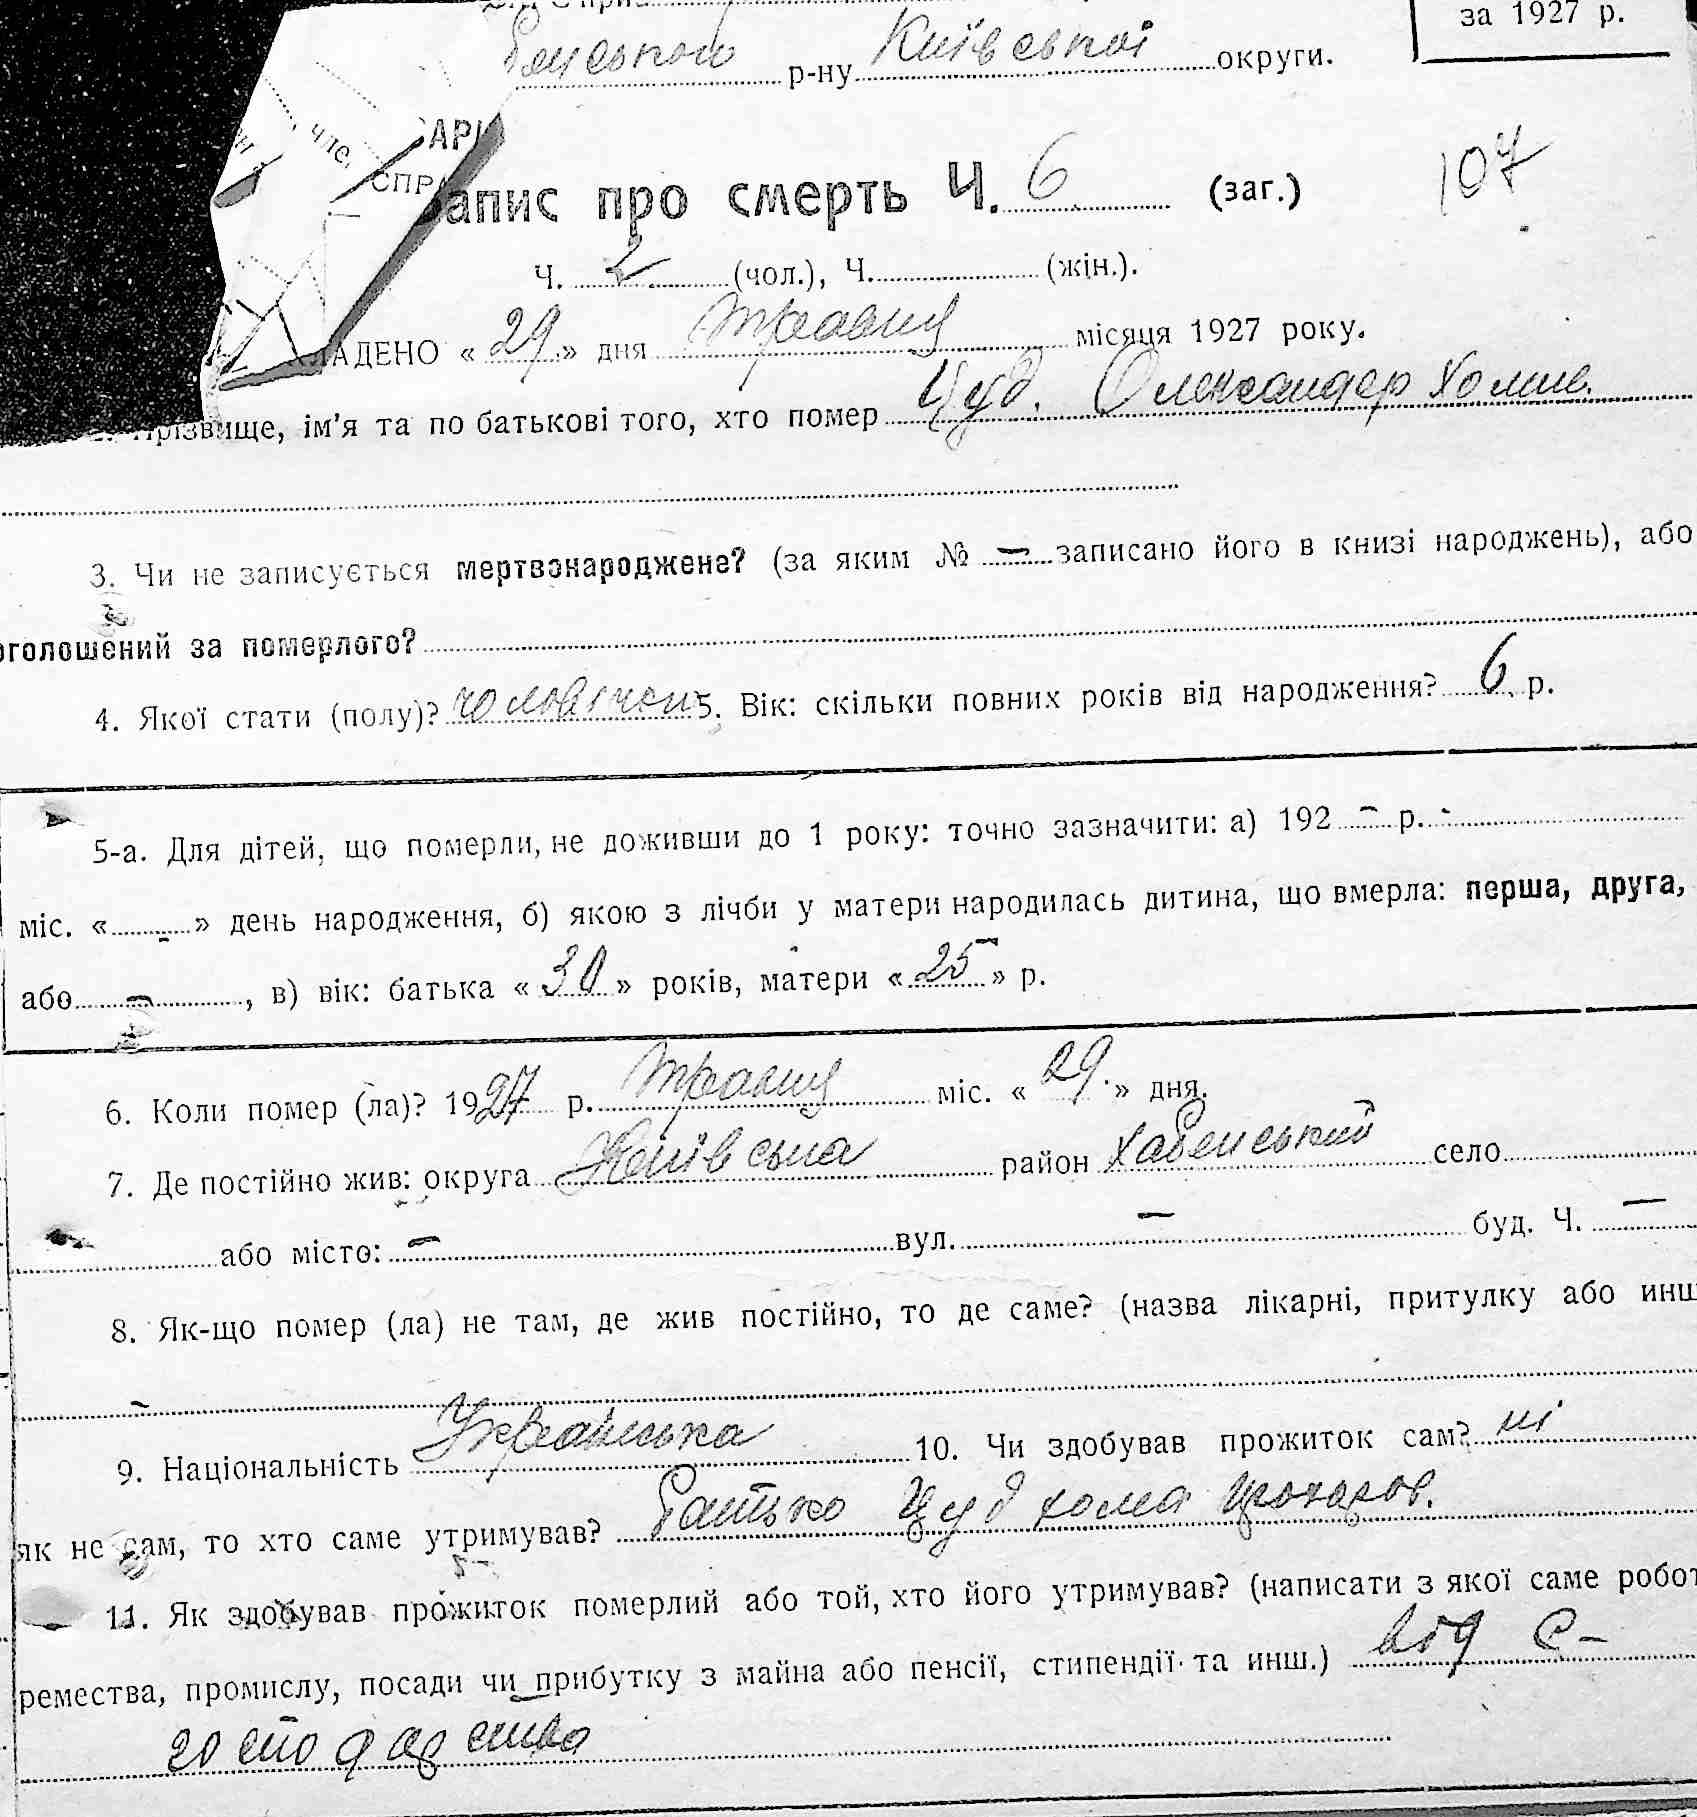 за 1927 р.
р-ну Київської округи.
САРІ
чле.
СПРА
апис про смерть Ч. 6 (заг.) 107
Ч. 2 (чол.), Ч. (жін.).
ЛАДЕНО « 29 » дня травня місяця 1927 року.
прізвище, ім'я та по батькові того, хто помер Цуд. Олександер Хомич.
3. Чи не записується мертвонароджене? (за яким № — записано його в книзі народжень), або
оголошений за померлого?
4. Якої стати (полу)? чоловічої 5. Вік: скільки повних років від народження? 6 р.
5-а. Для дітей, що померли, не доживши до 1 року: точно зазначити: а) 192 – р. -
міс. « - » день народження, б) якою з лічби у матери народилась дитина, що вмерла: перша, друга,
або – , в) вік: батька « 30 » років, матери « 25 » р.
6. Коли помер (ла)? 1927 р. травня міс. « 29 » дня.
7. Де постійно жив: округа Київська район Хабенський село
або місто: – вул. – буд. Ч. –
8. Як-що помер (ла) не там, де жив постійно, то де саме? (назва лікарні, притулку або инш
–
9. Національність Українська 10. Чи здобував прожиток сам? ні
як не сам, то хто саме утримував? Батько Цуд Хома Прохоров.
11. Як здобував прожиток померлий або той, хто його утримував? (написати з якої саме робот
ремества, промислу, посади чи прибутку з майна або пенсії, стипендії та инш.) від С–
господарства